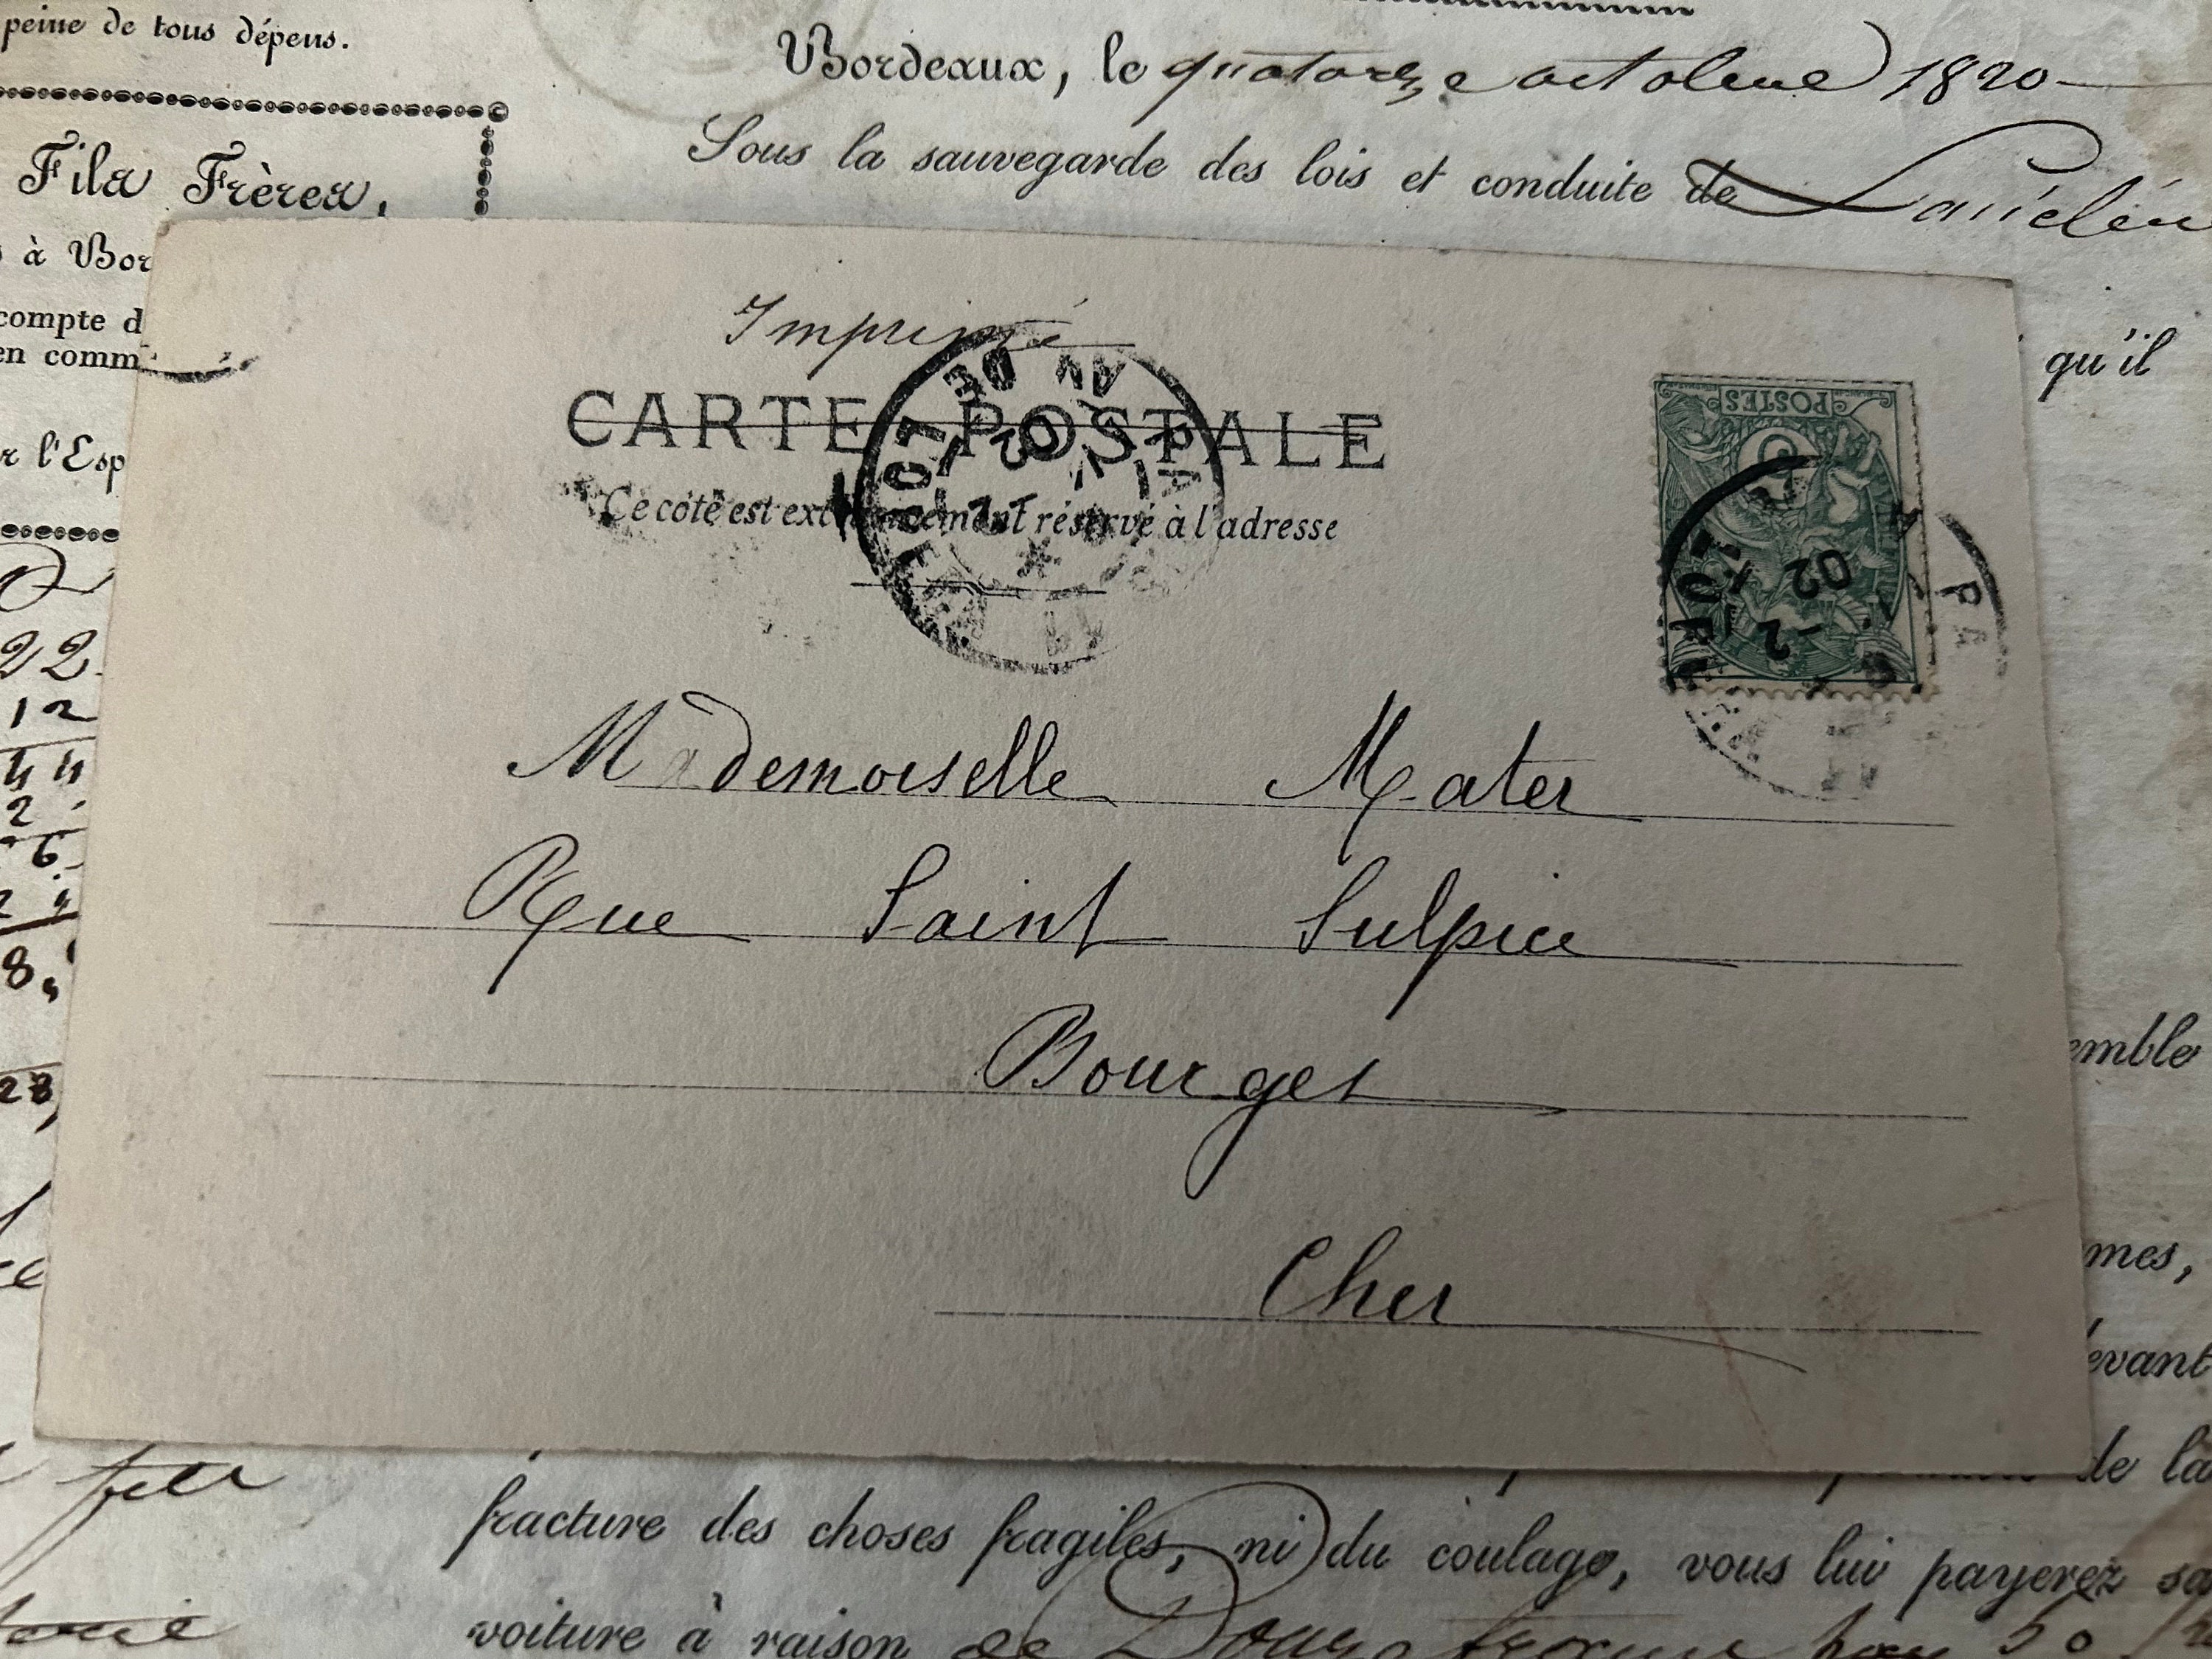 peine de tous dépens.
Bordeaux, le quatorze octobre 1820
Sous la sauvegarde des lois et conduite de
Fils Frères,
à Bor
compte d
en comm
qu'il
r l'Esp
22
12
44
2
6
8,
28,
Imprimé
CARTE POSTALE
Ce côté est exclusivement réservé à l'adresse
POSTES
5
02
Mademoiselle Mater
Rue Saint Sulpice
Bourges
Cher
emble
mes,
evant
de la
fracture des choses fragiles, ni du coulage, vous lui payerez sa
voiture à raison de Douze francs par 50